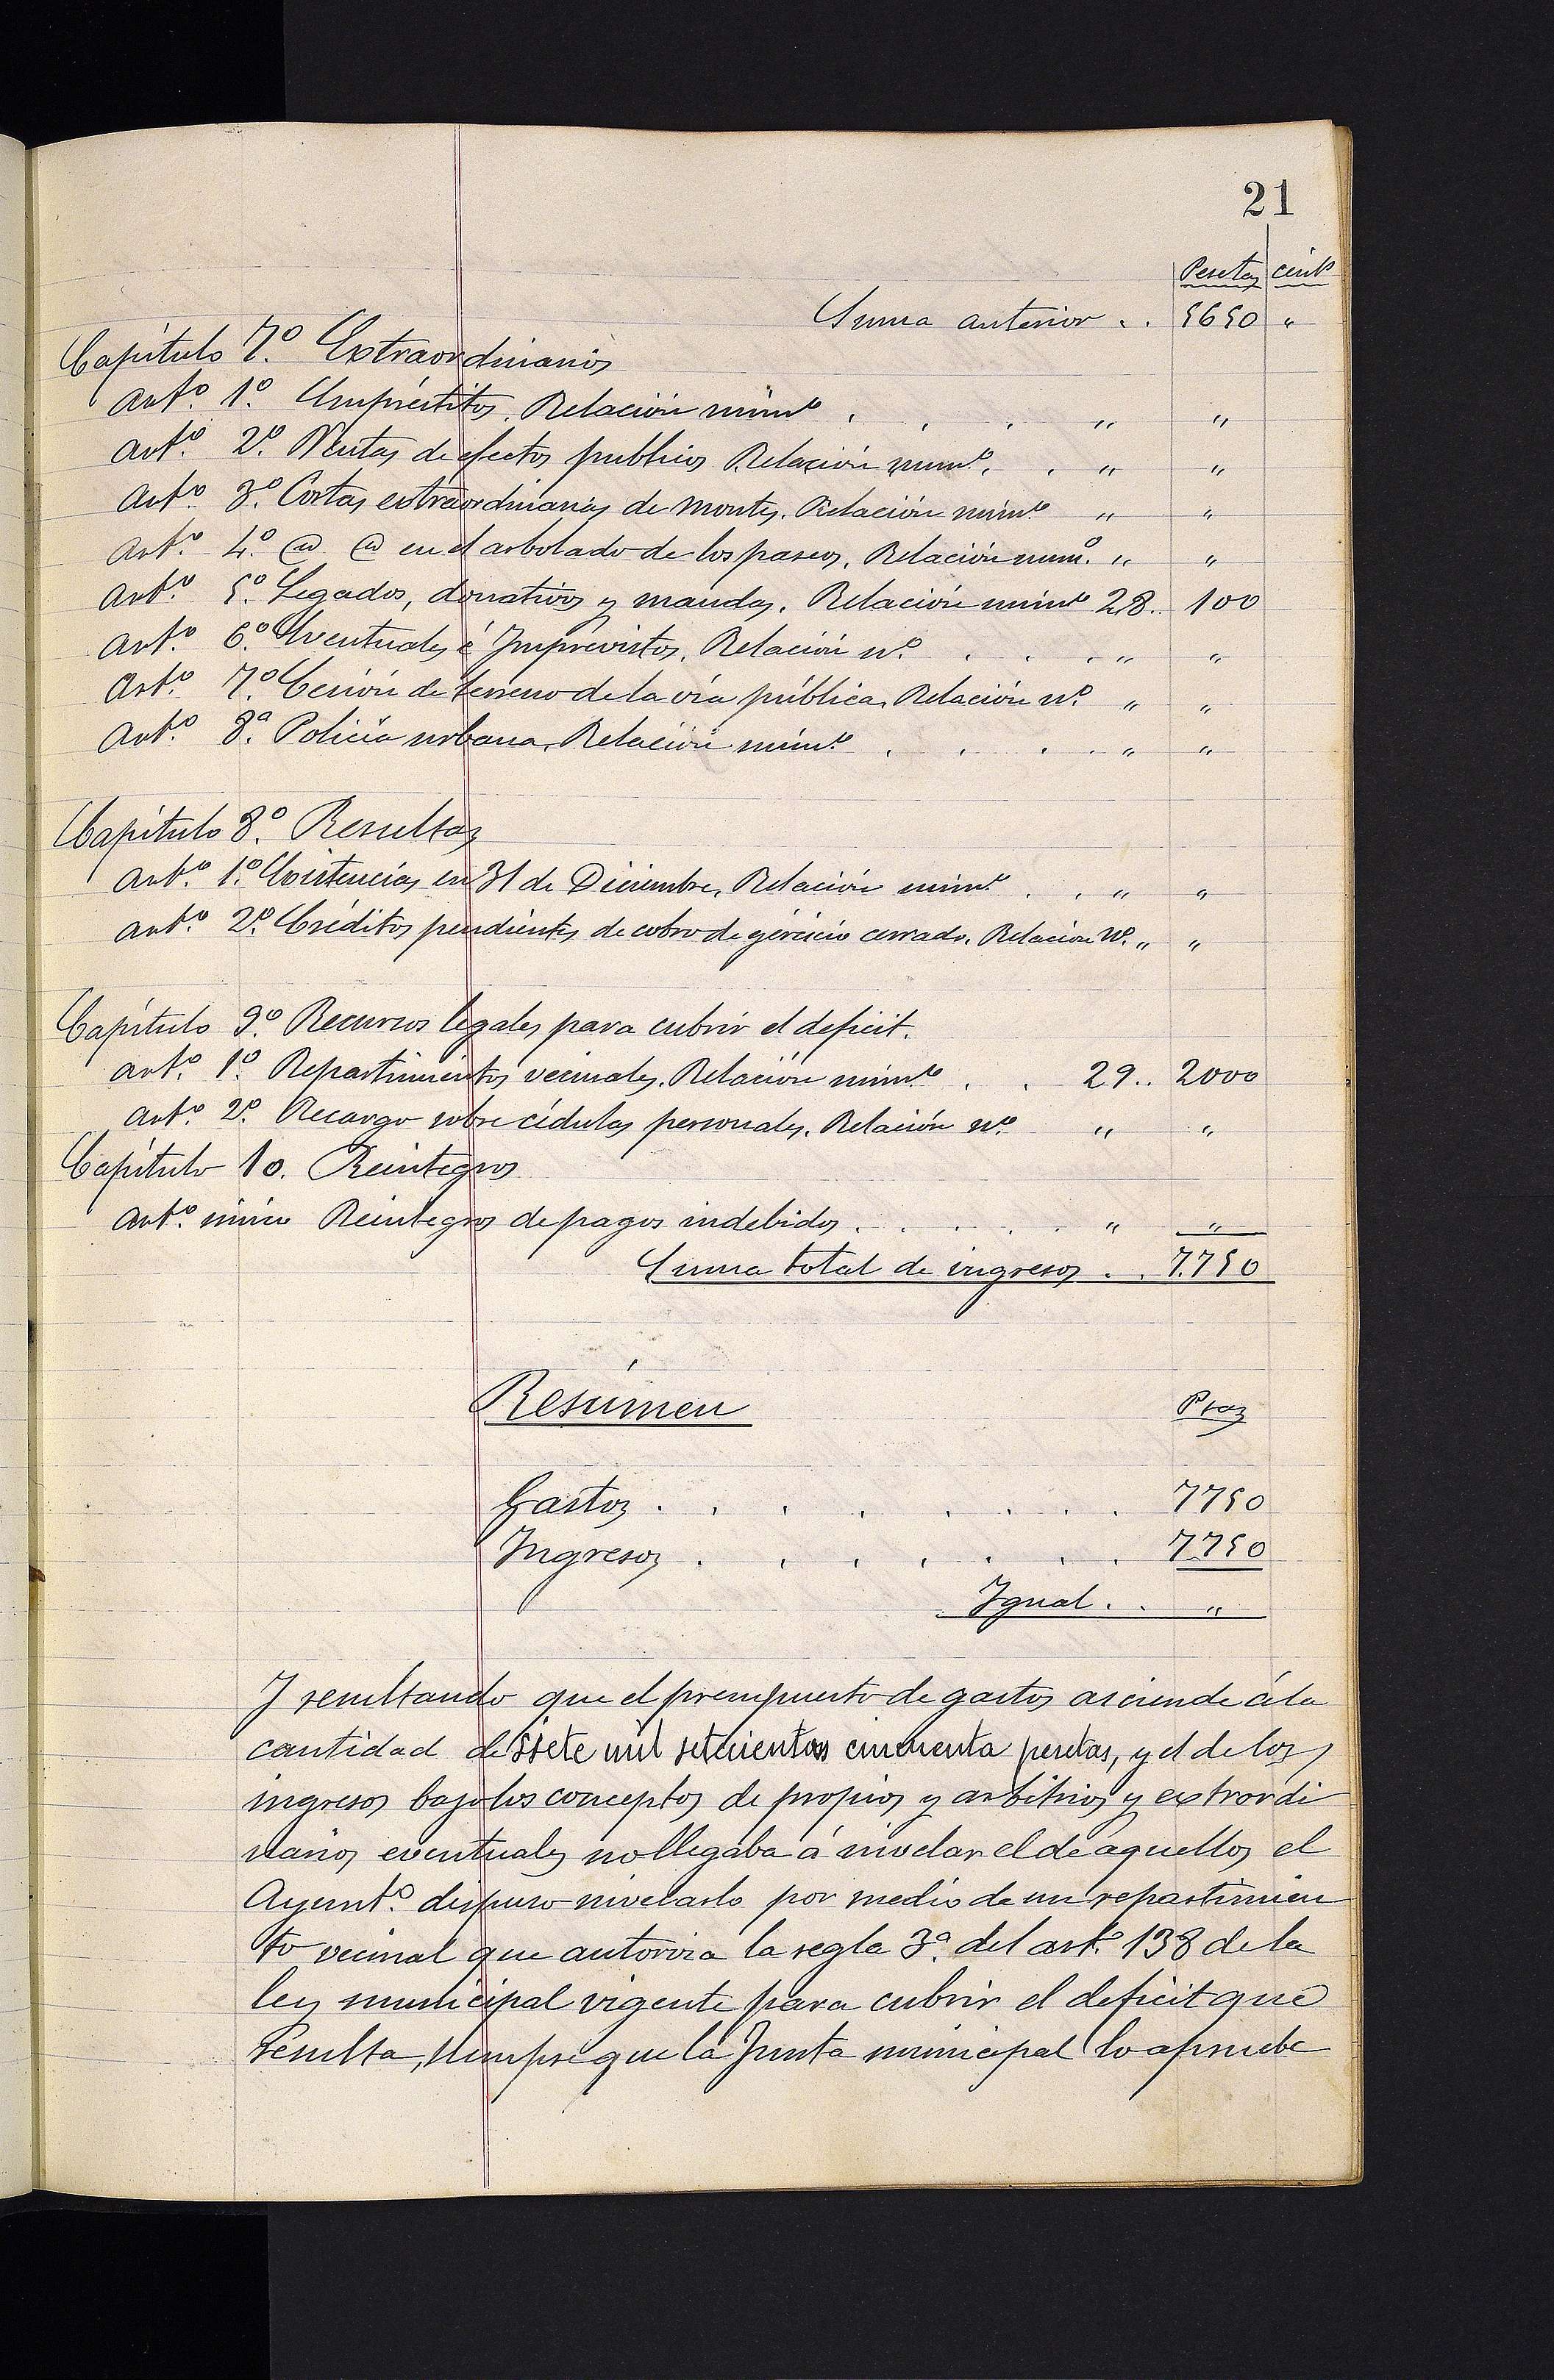 21
Pesetas cénts
Suma anterior . . 5650 "
Capítulo 7º. Extraordinarios
Artº. 1º. Empréstitos. Relación númº . . . " "
Artº. 2º. Ventas de efectos publicos Relación numº. . " "
Artº. 3º. Cortas extraordinarias de montes. Relación númº " "
Artº. 4º. @ @ en el arbolado de los paseos. Relación numº. " "
Artº. 5º. Legados, donativos y mandas. Relación númº 28.. 100
Artº. 6º. Eventuales é Imprevistos. Relación nº . . . . " "
Artº. 7º. Cesión de terreno de la vía pública, Relación nº. " "
Artº. 8ª. Policía urbana, Relación númº . . . . " "
Capítulo 8º. Resultas
Artº. 1º. Existencias en 31 de Diciembre, Relación númº . . " "
Artº. 2º. Créditos pendientes de cobro de géricicio cerrado. Relación Nº. " "
Capítulo 9º. Recursos legales para cubrir el deficit.
Artº. 1º. Repartimientos vecinales. Relación númº . . 29.. 2000
Artº. 2º. Recargo sobre cédulas personales. Relación nº " "
Capítulo 10. Reintegros
Artº. único Reintegros de pagos indebidos . . . . . " "
Suma total de ingresos . . 7.750
Resúmen Ptas
Gastos . . . . . . . . 7750
Ingresos . . . . . . . 7.750
Igual . . "
Y resultando que el presupuesto de gastos asciende á la
cantidad de siete mil setecientas cincuenta pesetas, y el de los
ingresos bajo los conceptos de propios y arbitrios y extrordi
narios eventuales no llegaba á nivelar el de aquellos el
Ayuntº. dispuso nivelarlo por medio de un repartimien
to vecinal que autoriza la regla 3ª. del artº. 138 de la
ley municipal vigente para cubrir el deficit que
resulta, siempre que la Junta municipal lo apruebe